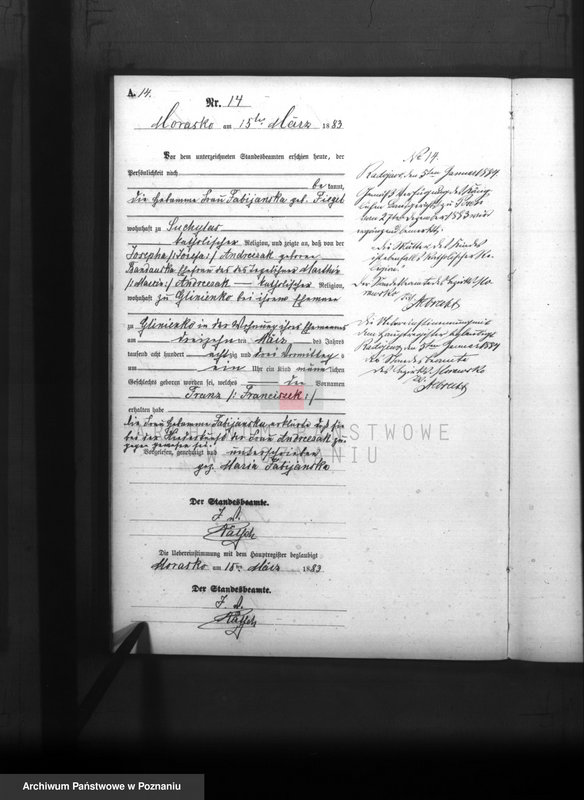 A. 14.
Nr. 14
Morasko am 15ten März 1883
Vor dem unterzeichneten Standesbeamten erschien heute, der
Persönlichkeit nach
be kannt,
die Hebamme Frau Fabijanska geb.
wohnhaft zu Suchylas
katholischer Religion, und zeigte an, daß von der
Josepha /: Josefa :/ Andrczak geborene
Ehefrau des
/: Marcin :/ Andrczak — katholischer Religion,
wohnhaft zu Glinienko bei ihrem Ehemann
zu Glinienko in der Wohnung ihres Ehemannes
am dreizehnten März des Jahres
tausend acht hundert achtzig und drei Vormittags
um ein Uhr ein Kind männlichen
Geschlechts geboren worden sei, welches den Vornamen
Franz /: Franciszek :/
erhalten habe
die Frau Hebamme Fabijanska erklärte daß sie
bei der Niederkunft der Frau Andrczak zu-
gegen gewesen sei.
Vorgelesen, genehmigt und unterschrieben
gez. Maria Fabijanska
Der Standesbeamte.
Die Uebereinstimmung mit dem Hauptregister beglaubigt
Morasko am 15ten März 1883
Der Standesbeamte.
No 14.
Radojewo, den 3ten Januar 1884
Gemäß Verfügung des König-
lichen Amtsgerichts zu
vom 27ten Dezember 1883 wird
ergänzend bemerkt:
die Mutter des Kindes
ist ebenfalls katholischer Re-
ligion.
Der Standesbeamte des Bezirks Mo-
rasko
Die Uebereinstimmung mit
dem Hauptregister beglaubigt
Radojewo, den 3ten Januar 1884
Der Standesbeamte
des Bezirks Morasko
ARCHIWUM PAŃSTWOWE
W POZNANIU
Archiwum Państwowe w Poznaniu